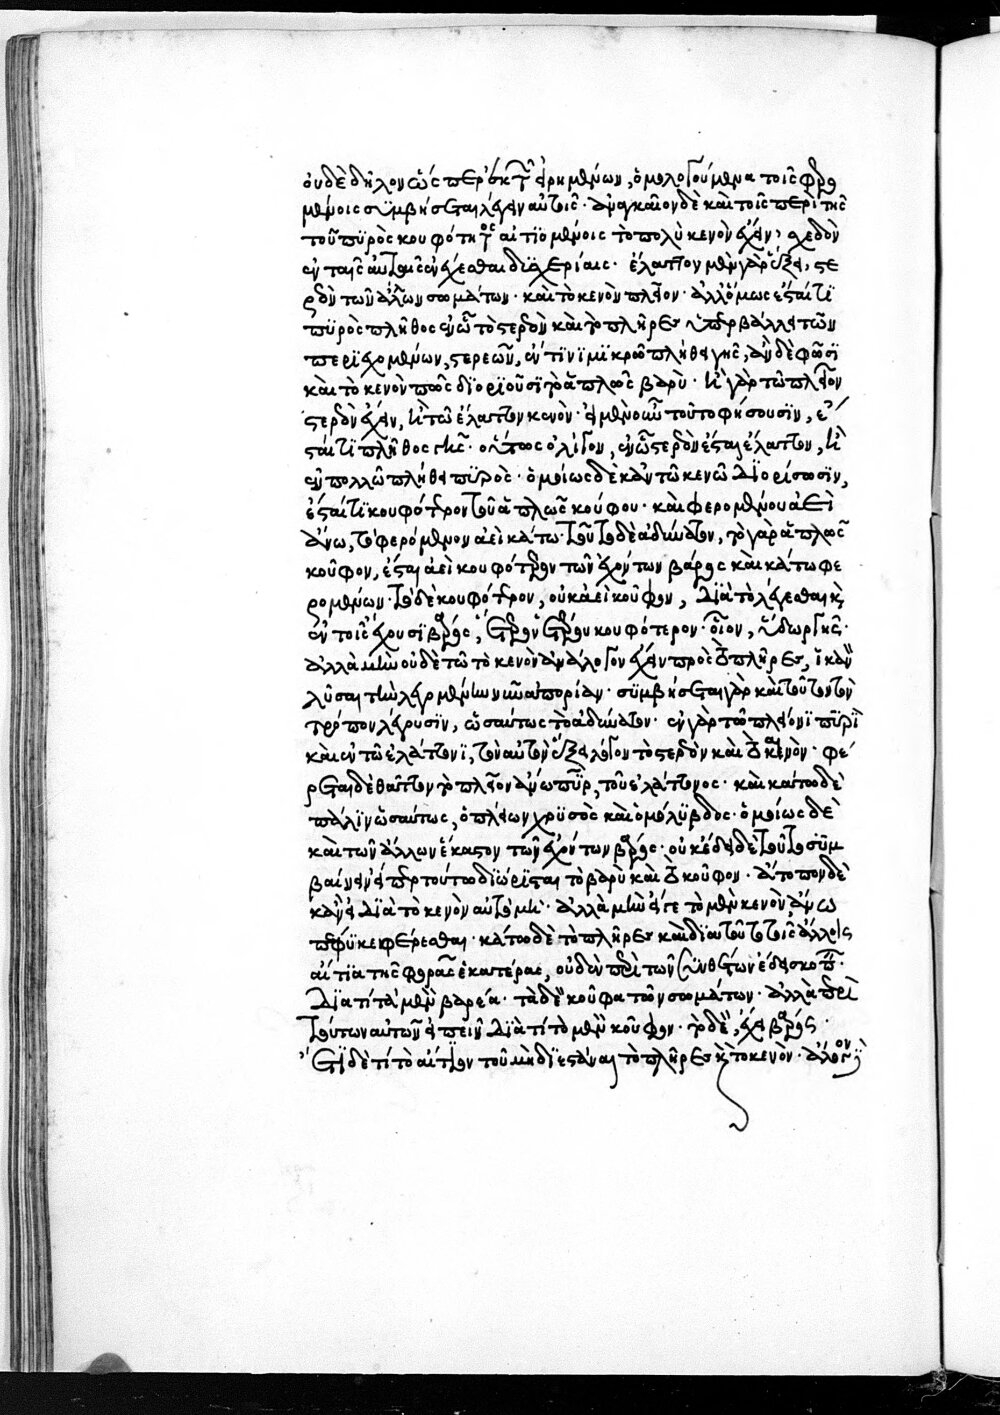 οὐδὲ δῆλον ὥσπερ ἐκ τῶν εἰρημένων, ὁμολογούμενα τοῖς φαινο
μένοις συμβήσεται λέγειν αὐτοῖς· ἀναγκαῖον δὲ καὶ τοῖς περὶ τῆς
τοῦ πυρὸς κουφότητος αἰτιωμένοις τὸ πολὺ κενὸν ἔχειν, σχεδὸν
ἐν ταῖς αὐταῖς ἐνέχεσθαι δυσχερίαις· ἔλαττον μὲν γὰρ ἕξει στε
ρεὸν τῶν ἄλλων σωμάτων· καὶ τὸ κενὸν πλεῖον· ἀλλ' ὅμως ἔσται τι
πυρὸς πλῆθος ἐν ᾧ τὸ στερεὸν καὶ τὸ πλῆρες ὑπερβάλλει τῶν
περιεχομένων στερεῶν, ἔν τινι μικρῷ πλήθει γῆς, ἂν δὲ φῶσι
καὶ τὸ κενὸν πῶς διοριοῦσι τὸ ἁπλῶς βαρὺ· ἢ γὰρ τῷ πλεῖον
στερεὸν ἔχειν, ἢ τῷ ἔλαττον κενὸν· εἰ μὲν οὖν τοῦτο φήσουσιν, ἔ
σται τι πλῆθος γῆς· οὕτως ὀλίγον, ἐν ᾧ στερεὸν ἔσται ἔλαττον, ἢ
ἐν πολλῷ πλήθει πυρὸς· ὁμοίως δὲ κἂν τῷ κενῷ διορίσωσιν,
ἔσται τι κουφότερον τοῦ ἁπλῶς κούφου· καὶ φερομένου ἀεὶ
ἄνω, τὸ φερόμενον ἀεὶ κάτω· τοῦτο δὲ ἀδύνατον, τὸ γὰρ ἁπλῶς
κοῦφον, ἔσται ἀεὶ κουφότερον τῶν ἐχόντων βάρος καὶ κάτω φε
ρομένων· τὸ δὲ κουφότερον, οὐκ ἀεὶ κοῦφον, διὰ τὸ λέγεσθαι καὶ
ἐν τοῖς ἔχουσι βάρος, ἕτερον ἑτέρου κουφότερον· οἷον, ὕδωρ γῆς·
ἀλλὰ μὴν οὐδὲ τῷ τὸ κενὸν ἀνάλογον ἔχειν πρὸς τὸ πλῆρες, ἱκανὸν
λῦσαι τὴν λεγομένην νῦν ἀπορίαν· συμβήσεται γὰρ καὶ τοῦτον τὸν
τρόπον λέγουσιν, ὡσαύτως τὸ ἀδύνατον· ἐν γὰρ τῷ πλείονι πυρὶ
καὶ ἐν τῷ ἐλάττονι, τὸν αὐτὸν ἕξει λόγον τὸ στερεὸν καὶ τὸ κενὸν· φέ
ρεται δὲ θᾶττον τὸ πλεῖον ἄνω πῦρ, τοῦ ἐλάττονος· καὶ κάτω δὲ
πάλιν ὡσαύτως, ὁ πλείων χρυσὸς καὶ ὁ μόλυβδος· ὁμοίως δὲ
καὶ τῶν ἄλλων ἕκαστον τῶν ἐχόντων βάρος· οὐκ ἔδει δὲ τοῦτο συμ
βαίνειν εἴπερ τούτῳ διώρισται τὸ βαρὺ καὶ τὸ κοῦφον· ἄτοπον δὲ
καὶ εἰ διὰ τὸ κενὸν αὐτὸ μὴ· ἀλλὰ μὴν εἴ γε τὸ μὲν κενὸν, ἄνω
πέφυκε φέρεσθαι· κάτω δὲ τὸ πλῆρες καὶ διὰ τοῦτο τοῖς ἄλλοις
αἴτια τῆς φορᾶς ἑκατέρας, οὐδὲν περὶ τῶν συνθέτων ἔδει σκοπεῖν·
διὰ τί τὰ μὲν βαρέα· τὰ δὲ κοῦφα τῶν σωμάτων· ἀλλὰ περὶ
τούτων αὐτῶν εἰπεῖν διὰ τί τὸ μὲν κοῦφον· τὸ δὲ, ἔχει βάρος·
ἔτι δὲ τί τὸ αἴτιον τοῦ μὴ διεστάναι τὸ πλῆρες καὶ τὸ κενὸν· ἄλογον